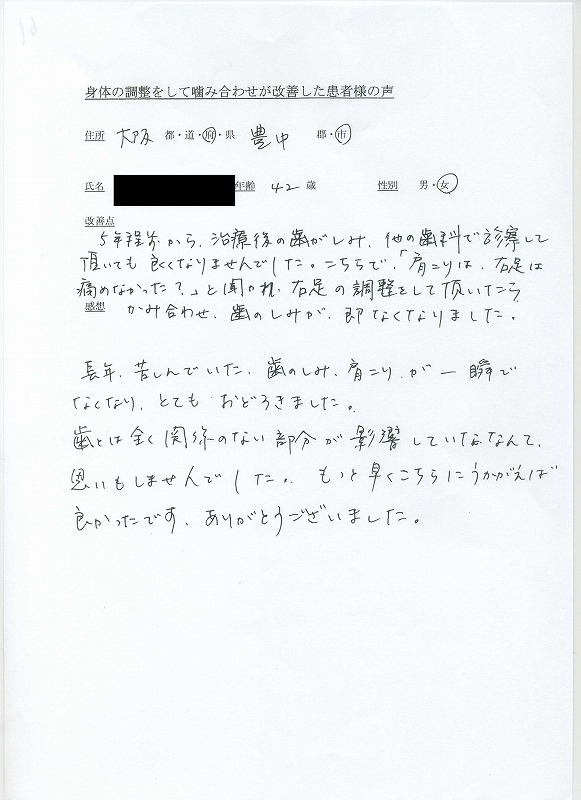 16
身体の調整をして噛み合わせが改善した患者様の声
住所 大阪 都・道・府・県 豊中 郡・市
氏名 年齢 42 歳 性別 男・女
改善点
5年程前から、治療後の歯がしみ、他の歯科で診察して
頂いても良くなりませんでした。こちらで、「肩こりは、右足は
痛めなかった？」と聞かれ、右足の調整をして頂いたら
感想 かみ合わせ、歯のしみが、即なくなりました。
長年、苦しんでいた、歯のしみ、肩こり、が一瞬で
なくなり、とても おどろきました。
歯とは全く関係のない部分が影響していたなんて、
思いもしませんでした。もっと早くこちらにうかがえば
良かったです、ありがとうございました。